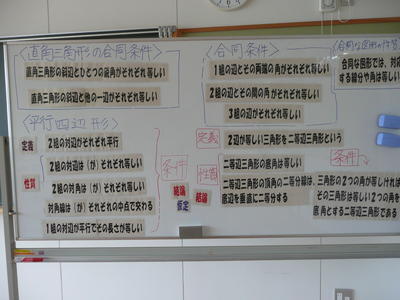 〈直角三角形の合同条件〉
直角三角形の斜辺とひとつの鋭角がそれぞれ等しい
直角三角形の斜辺と他の一辺がそれぞれ等しい
〈合同条件〉
1組の辺とその両端の角がそれぞれ等しい
2組の辺とその間の角がそれぞれ等しい
3組の辺がそれぞれ等しい
〈合同な図形の性質
合同な図形では、対応
する線分や角は等しい
〈平行四辺形〉
定義
2組の対辺がそれぞれ平行
性質
2組の対辺は(が)それぞれ等しい
2組の対角は(が)それぞれ等しい
対角線は(が)それぞれの中点で交わる
1組の対辺が平行でその長さが等しい
条件
結論
仮定
定義
2辺が等しい三角形を二等辺三角形という
性質
結論
二等辺三角形の底角は等しい
二等辺三角形の頂角の二等分線は、
底辺を垂直に二等分する
条件
三角形の2つの角が等しければ
その三角形は等しい2つの角を
底角とする二等辺三角形である